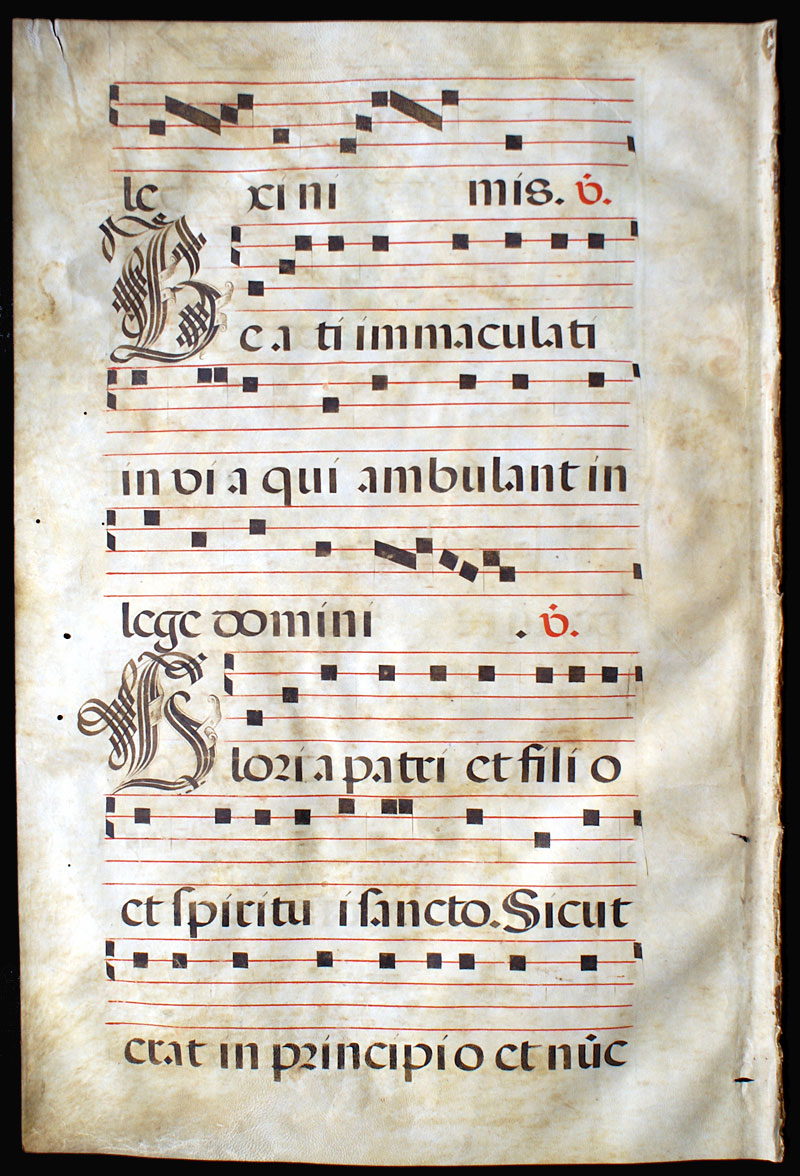 le xi ni mis. ℣.
Be a ti immaculati
in vi a qui ambulant in
lege domini . ℣.
Glori a patri et fili o
et spiritu i sancto. Sicut
erat in principi o et nūc